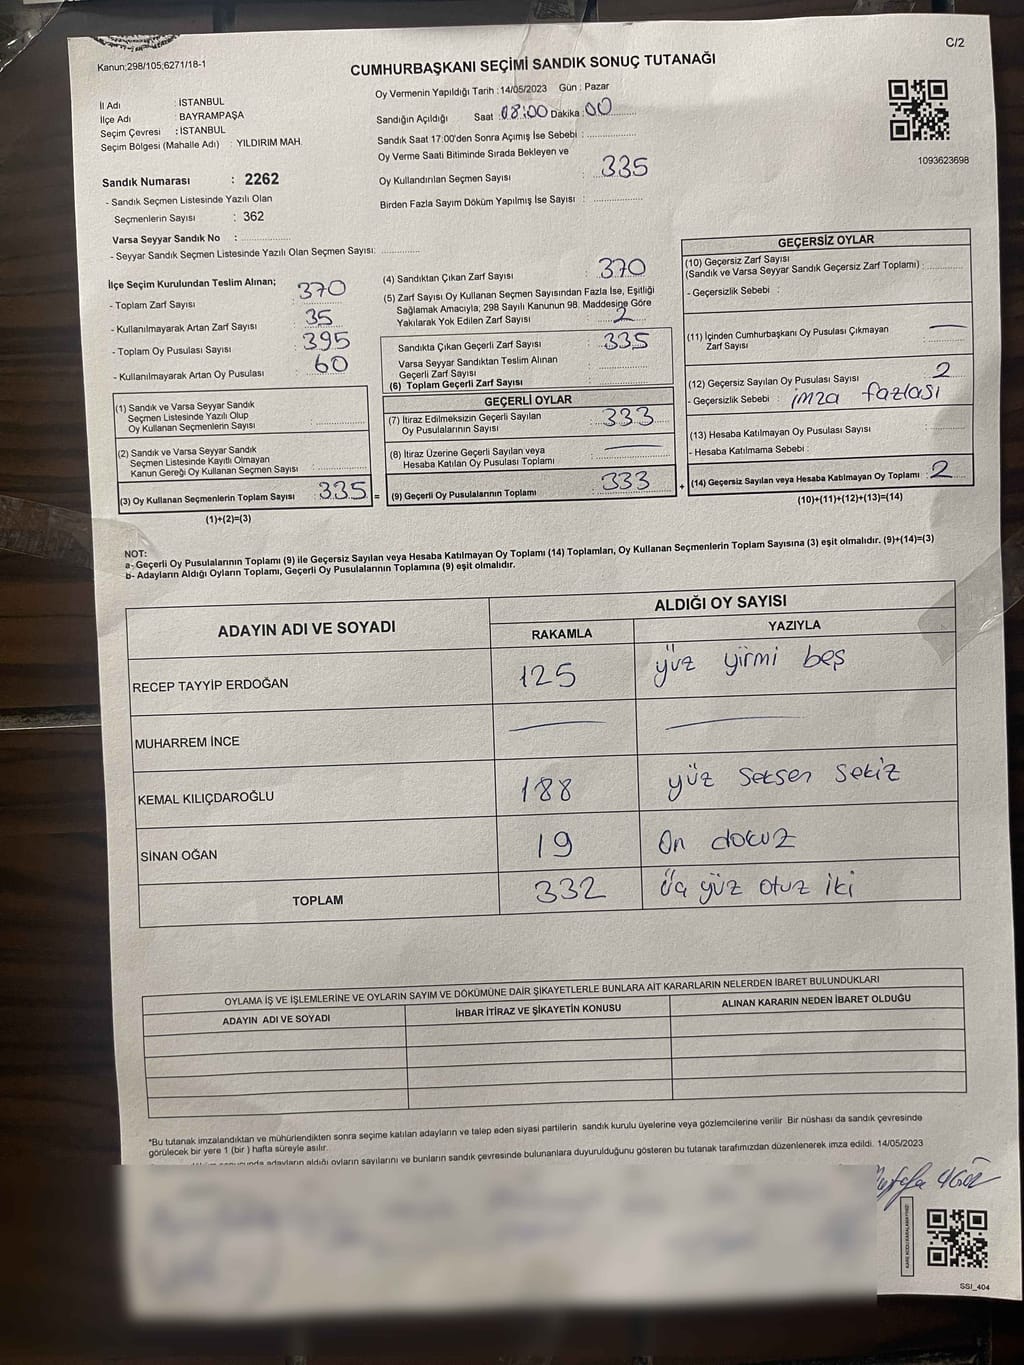 Kanun;298/105;6271/18-1
C/2
CUMHURBAŞKANI SEÇİMİ SANDIK SONUÇ TUTANAĞI
İl Adı : İSTANBUL
İlçe Adı : BAYRAMPAŞA
Seçim Çevresi : İSTANBUL
Seçim Bölgesi (Mahalle Adı) : YILDIRIM MAH.
Sandık Numarası : 2262
- Sandık Seçmen Listesinde Yazılı Olan
Seçmenlerin Sayısı : 362
Varsa Seyyar Sandık No :
- Seyyar Sandık Seçmen Listesinde Yazılı Olan Seçmen Sayısı:
Oy Vermenin Yapıldığı Tarih : 14/05/2023 Gün : Pazar
Sandığın Açıldığı Saat : 08:00 Dakika : 00
Sandık Saat 17:00'den Sonra Açımış İse Sebebi :
Oy Verme Saati Bitiminde Sırada Bekleyen ve
Oy Kullandırılan Seçmen Sayısı : 335
Birden Fazla Sayım Döküm Yapılmış İse Sayısı :
1093623698
İlçe Seçim Kurulundan Teslim Alınan;
- Toplam Zarf Sayısı : 370
- Kullanılmayarak Artan Zarf Sayısı : 35
- Toplam Oy Pusulası Sayısı : 395
- Kullanılmayarak Artan Oy Pusulası : 60
(1) Sandık ve Varsa Seyyar Sandık
Seçmen Listesinde Yazılı Olup
Oy Kullanan Seçmenlerin Sayısı :
(2) Sandık ve Varsa Seyyar Sandık
Seçmen Listesinde Kayıtlı Olmayan
Kanun Gereği Oy Kullanan Seçmen Sayısı :
(3) Oy Kullanan Seçmenlerin Toplam Sayısı : 335 =
(1)+(2)=(3)
(4) Sandıktan Çıkan Zarf Sayısı : 370
(5) Zarf Sayısı Oy Kullanan Seçmen Sayısından Fazla İse, Eşitliği
Sağlamak Amacıyla; 298 Sayılı Kanunun 98. Maddesine Göre
Yakılarak Yok Edilen Zarf Sayısı : 2
Sandıkta Çıkan Geçerli Zarf Sayısı : 335
Varsa Seyyar Sandıktan Teslim Alınan
Geçerli Zarf Sayısı :
(6) Toplam Geçerli Zarf Sayısı :
GEÇERLİ OYLAR
(7) İtiraz Edilmeksizin Geçerli Sayılan
Oy Pusulalarının Sayısı : 333
(8) İtiraz Üzerine Geçerli Sayılan veya
Hesaba Katılan Oy Pusulası Toplamı :
(9) Geçerli Oy Pusulalarının Toplamı : 333 +
GEÇERSİZ OYLAR
(10) Geçersiz Zarf Sayısı
(Sandık ve Varsa Seyyar Sandık Geçersiz Zarf Toplamı) :
- Geçersizlik Sebebi :
(11) İçinden Cumhurbaşkanı Oy Pusulası Çıkmayan
Zarf Sayısı :
(12) Geçersiz Sayılan Oy Pusulası Sayısı : 2
- Geçersizlik Sebebi : imza fazlası
(13) Hesaba Katılmayan Oy Pusulası Sayısı :
- Hesaba Katılmama Sebebi :
(14) Geçersiz Sayılan veya Hesaba Katılmayan Oy Toplamı : 2
(10)+(11)+(12)+(13)=(14)
NOT:
a- Geçerli Oy Pusulalarının Toplamı (9) ile Geçersiz Sayılan veya Hesaba Katılmayan Oy Toplamı (14) Toplamları, Oy Kullanan Seçmenlerin Toplam Sayısına (3) eşit olmalıdır. (9)+(14)=(3)
b- Adayların Aldığı Oyların Toplamı, Geçerli Oy Pusulalarının Toplamına (9) eşit olmalıdır.
ADAYIN ADI VE SOYADI
ALDIĞI OY SAYISI
RAKAMLA YAZIYLA
RECEP TAYYİP ERDOĞAN 125 yüz yirmi beş
MUHARREM İNCE
KEMAL KILIÇDAROĞLU 188 yüz seksen sekiz
SİNAN OĞAN 19 On dokuz
TOPLAM 332 Üç yüz otuz iki
OYLAMA İŞ VE İŞLEMLERİNE VE OYLARIN SAYIM VE DÖKÜMÜNE DAİR ŞİKAYETLERLE BUNLARA AİT KARARLARIN NELERDEN İBARET BULUNDUKLARI
ADAYIN ADI VE SOYADI İHBAR İTİRAZ VE ŞİKAYETİN KONUSU ALINAN KARARIN NEDEN İBARET OLDUĞU
*Bu tutanak imzalandıktan ve mühürlendikten sonra seçime katılan adayların ve talep eden siyasi partilerin sandık kurulu üyelerine veya gözlemcilerine verilir. Bir nüshası da sandık çevresinde
görülecek bir yere 1 (bir ) hafta süreyle asılır.
adayların aldığı oyların sayılarını ve bunların sandık çevresinde bulunanlara duyurulduğunu gösteren bu tutanak tarafımızdan düzenlenerek imza edildi. 14/05/2023
SSI_404